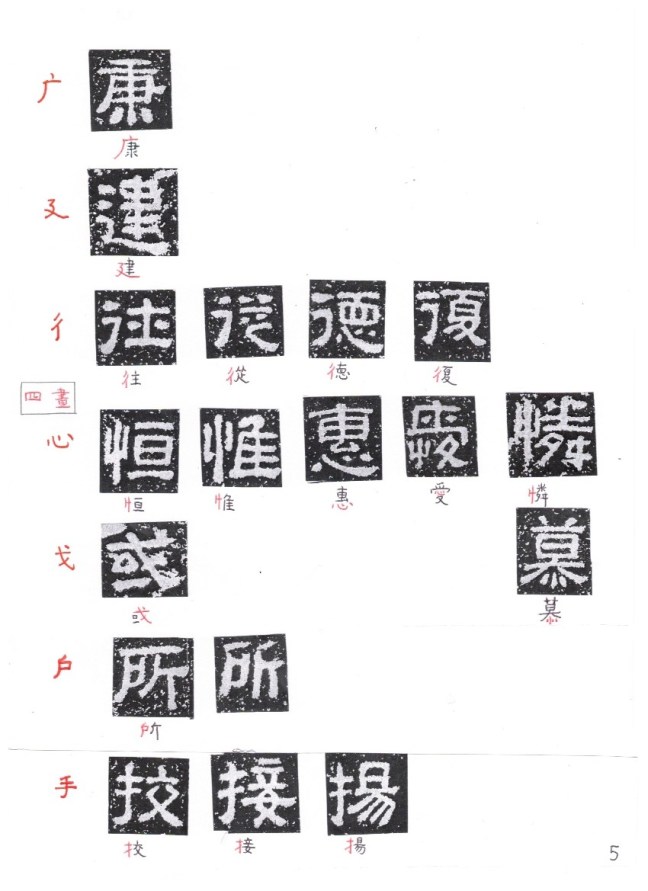 广 康
康
廴 建
建
彳 往 從 德 復
往 從 德 復
四畫
心 恒 惟 惠 愛 憐
恒 惟 惠 愛 憐
戈 或 慕
或 慕
戶 所 所
所
手 技 接 揚
技 接 揚
5